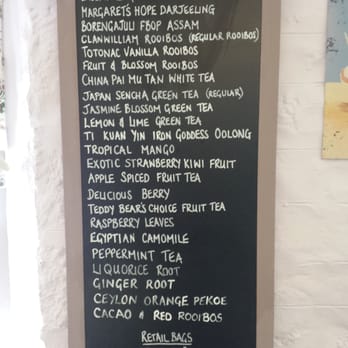 MARGARET'S HOPE DARJEELING
BORENGAJULI FBOP ASSAM
CLANWILLIAM ROOIBOS (REGULAR ROOIBOS)
TOTONAC VANILLA ROOIBOS
FRUIT & BLOSSOM ROOIBOS
CHINA PAI MU TAN WHITE TEA
JAPAN SENCHA GREEN TEA (REGULAR)
JASMINE BLOSSOM GREEN TEA
LEMON & LIME GREEN TEA
TI KUAN YIN IRON GODDESS OOLONG
TROPICAL MANGO
EXOTIC STRAWBERRY KIWI FRUIT
APPLE SPICED FRUIT TEA
DELICIOUS BERRY
TEDDY BEAR'S CHOICE FRUIT TEA
RASPBERRY LEAVES
EGYPTIAN CAMOMILE
PEPPERMINT TEA
LIQUORICE ROOT
GINGER ROOT
CEYLON ORANGE PEKOE
CACAO & RED ROOIBOS
RETAIL BAGS